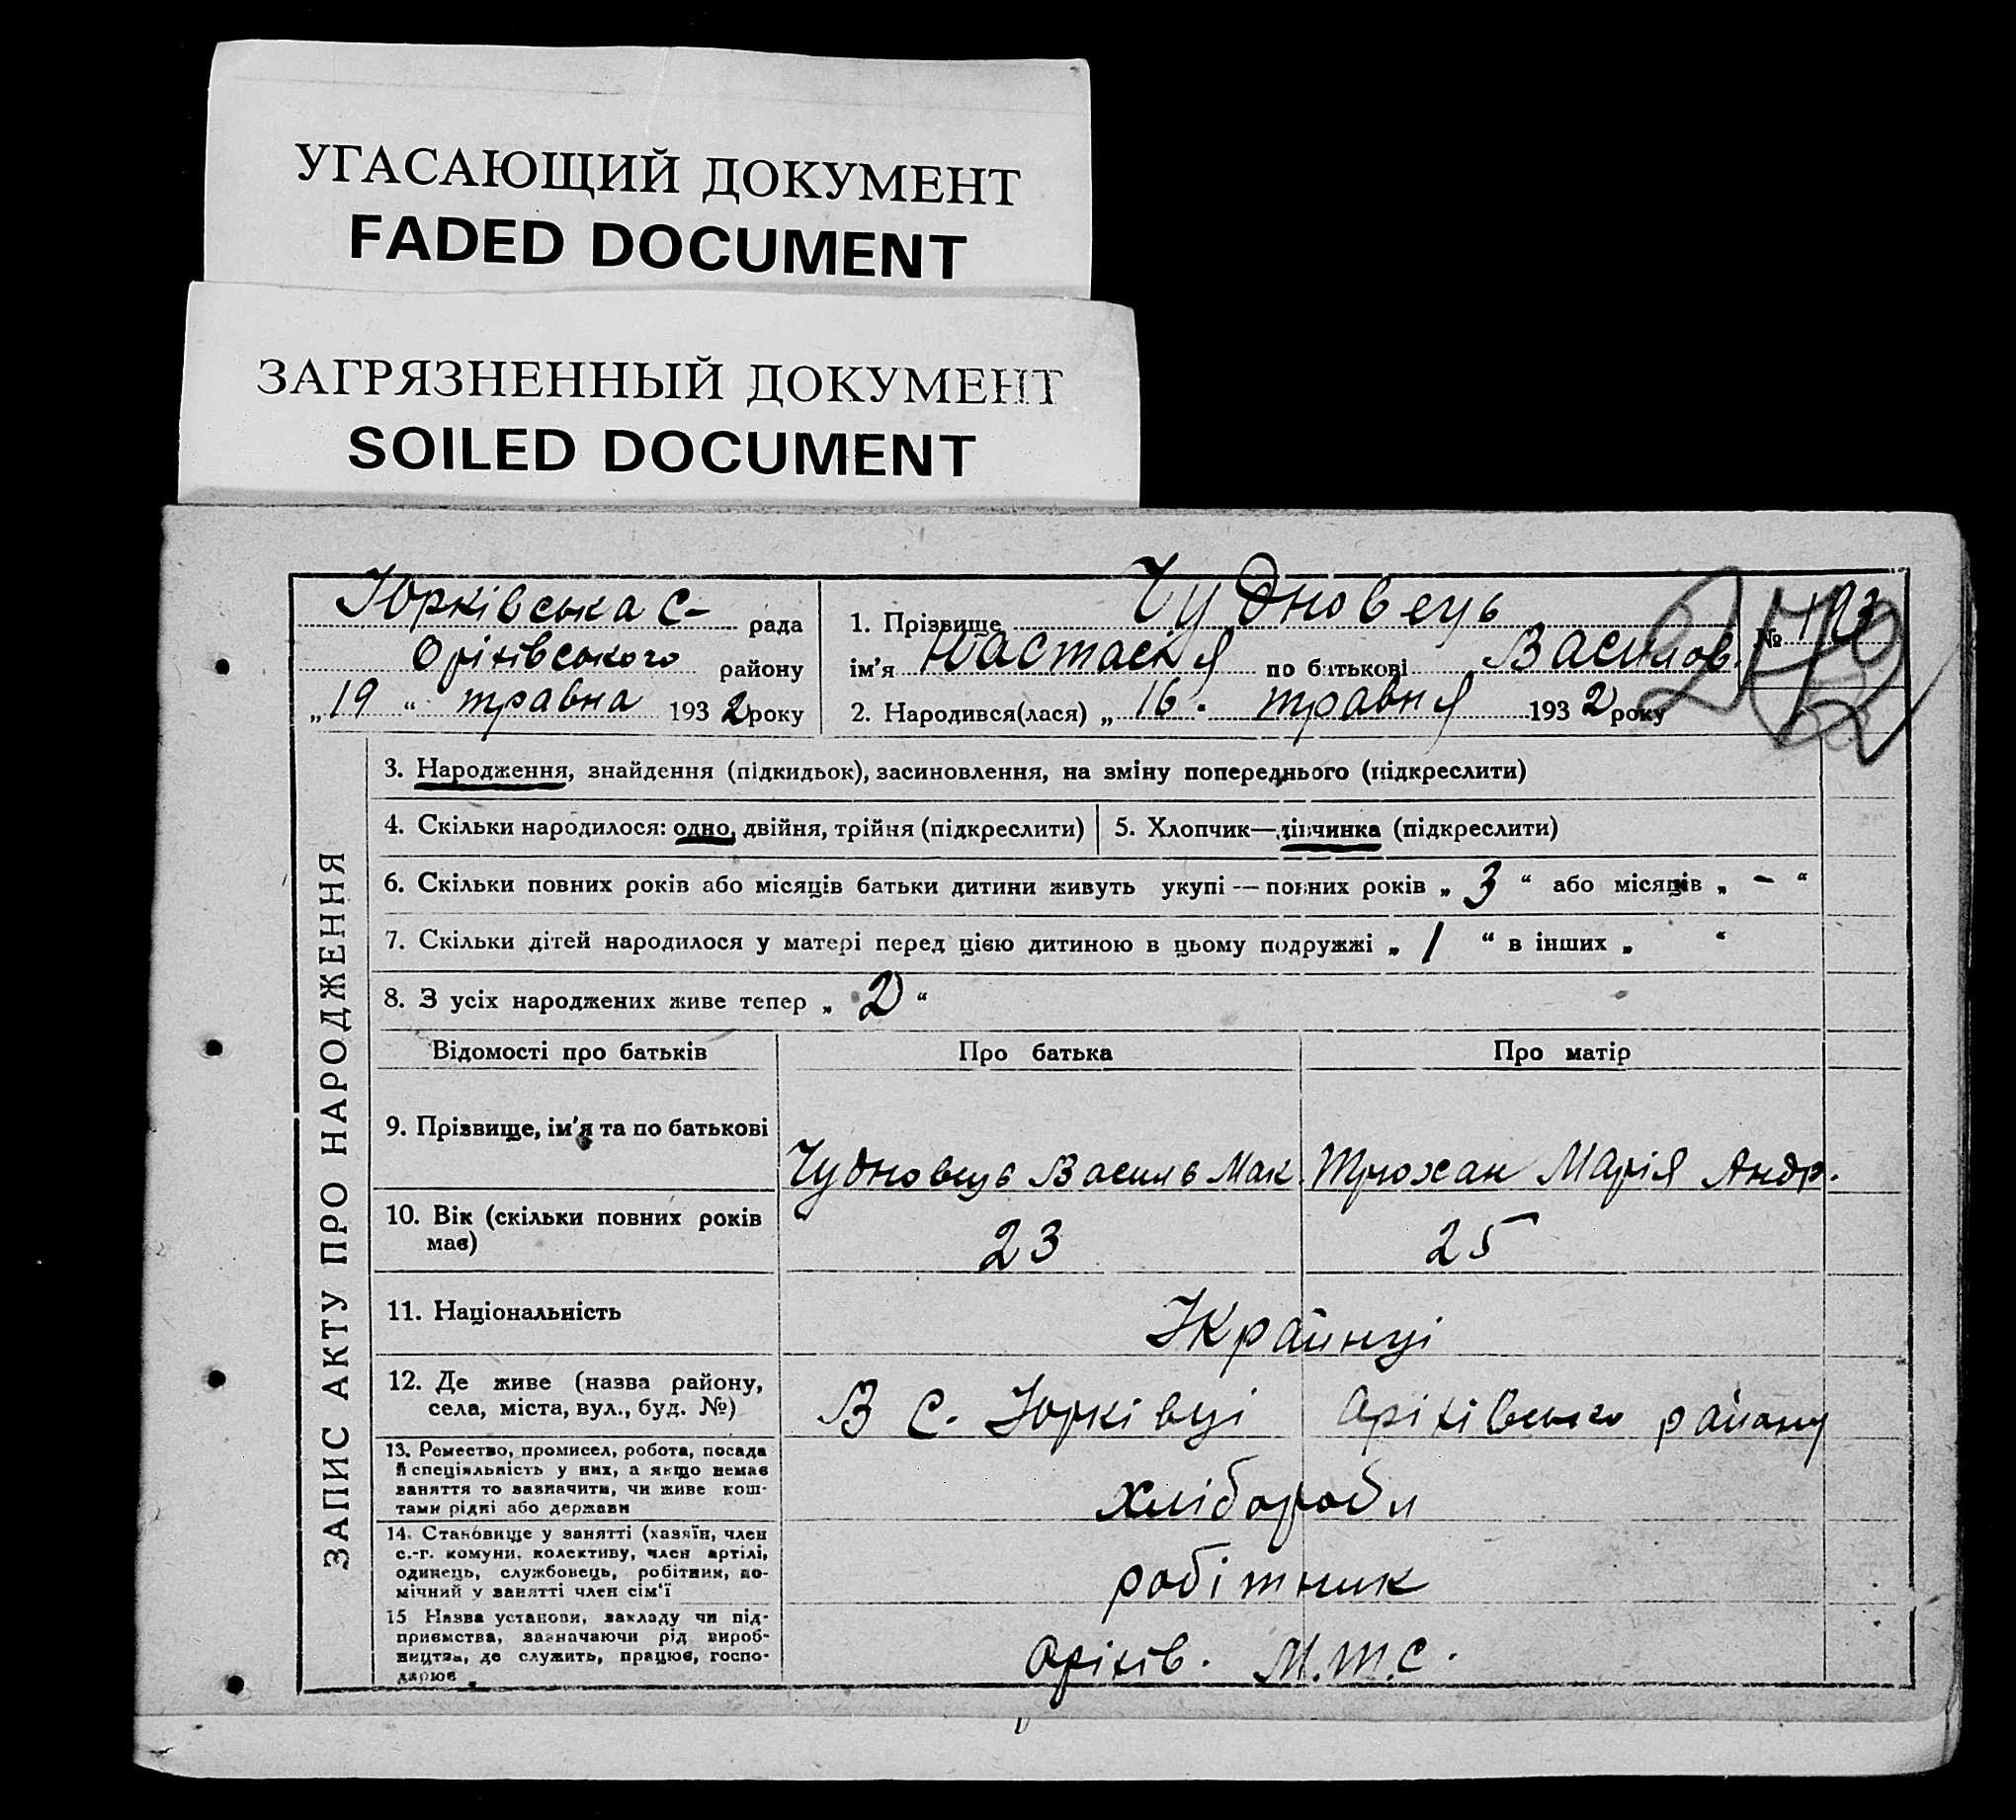 УГАСАЮЩИЙ ДОКУМЕНТ
FADED DOCUMENT
ЗАГРЯЗНЕННЫЙ ДОКУМЕНТ
SOILED DOCUMENT
Юрківська с- рада
Оріхівського району
„19“ травна 1932 року
1. Прізвище Чудновець
ім'я Настасія по батькові Васильов.
2. Народився(лася) „16. травня 1932 року
№
ЗАПИС АКТУ ПРО НАРОДЖЕННЯ
3. Народження, знайдення (підкидьок), засиновлення, на зміну попереднього (підкреслити)
4. Скільки народилося: одно, двійня, трійня (підкреслити)
5. Хлопчик—дівчинка (підкреслити)
6. Скільки повних років або місяців батьки дитини живуть укупі — повних років „ 3 “ або місяців „ - “
7. Скільки дітей народилося у матері перед цією дитиною в цьому подружжі „ 1 “ в інших „ “
8. З усіх народжених живе тепер „ 2 “
Відомості про батьків Про батька Про матір
9. Прізвище, ім'я та по батькові
Чудновець Василь Мак. Трюхан Марія Андр.
10. Вік (скільки повних років
має)
23 25
11. Національність
Українці
12. Де живе (назва району,
села, міста, вул., буд. №)
В с. Юрківці Оріхівського району
13. Ремество, промисел, робота, посада
й спеціяльність у них, а якщо немає
заняття то зазначити, чи живе кош-
тами рідні або держави
хлібороби
14. Становище у занятті (хазяїн, член
с.-г. комуни, колективу, член артілі,
одинець, службовець, робітник, по-
мічний у занятті член сім'ї
робітник
15 Назва установи, закладу чи під-
приємства, зазначаючи рід вироб-
ництва, де служить, працює, госпо-
дарює
Оріхів. М.Т.С.